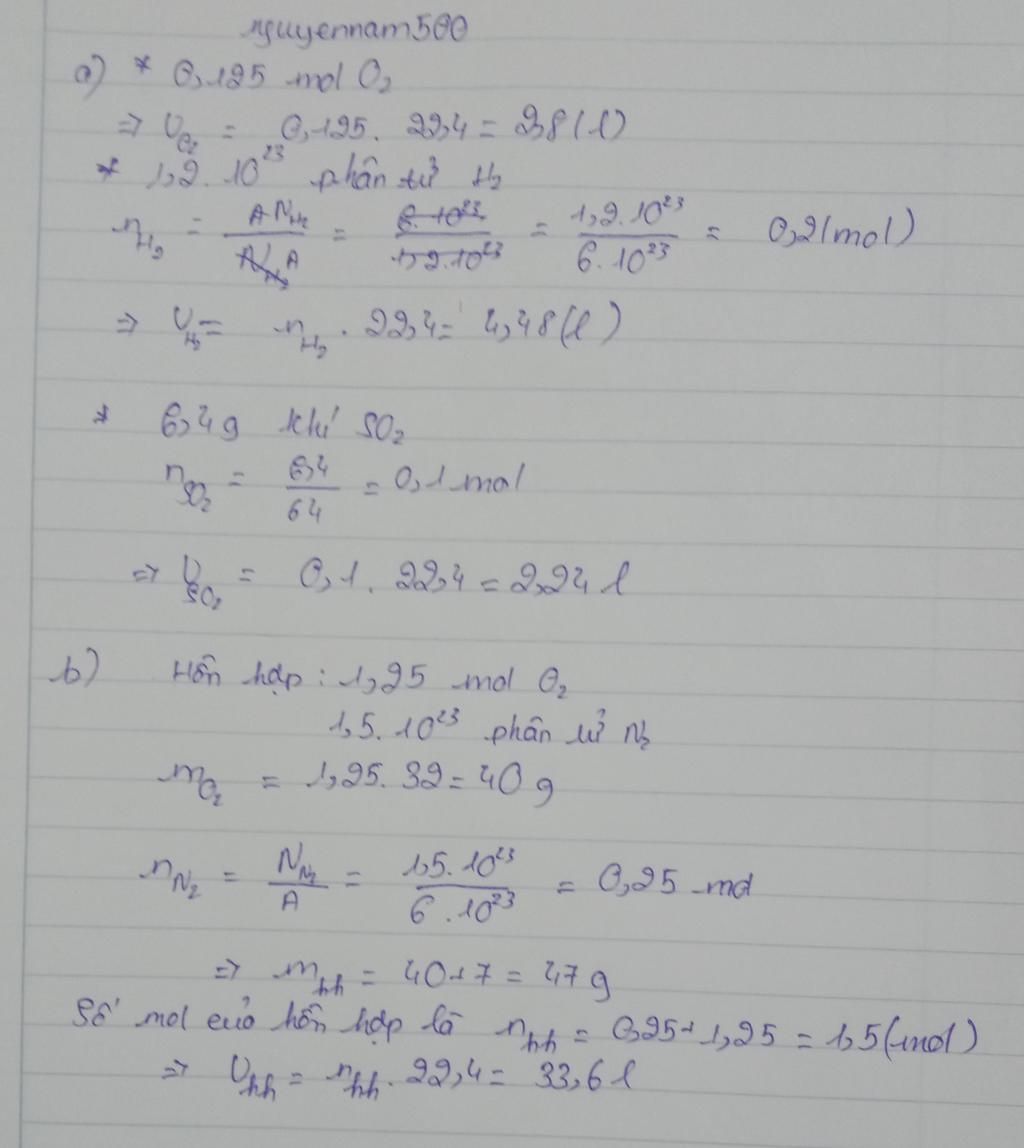 nguyennam500
a) * 0,125 mol O₂
=> V_O₂ = 0,125. 22,4 = 2,8 (l)
* 1,2. 10²³ phân tử H₂
n_H₂ = N_H₂/A = 6.10²³/1,2.10²³ = 1,2.10²³/6.10²³ = 0,2 (mol)
=> V_H₂ = n_H₂ . 22,4 = 4,48 (l)
* 6,4g khí SO₂
n_SO₂ = 6,4/64 = 0,1 mol
=> V_SO₂ = 0,1. 22,4 = 2,24 l
b) Hỗn hợp : 1,25 mol O₂
1,5. 10²³ phân tử N₂
m_O₂ = 1,25. 32 = 40 g
n_N₂ = N_N₂/A = 1,5.10²³/6.10²³ = 0,25 mol
=> m_hh = 40+7 = 47 g
Số mol của hỗn hợp là n_hh = 0,25+1,25 = 1,5 (mol)
=> V_hh = n_hh. 22,4 = 33,6 l